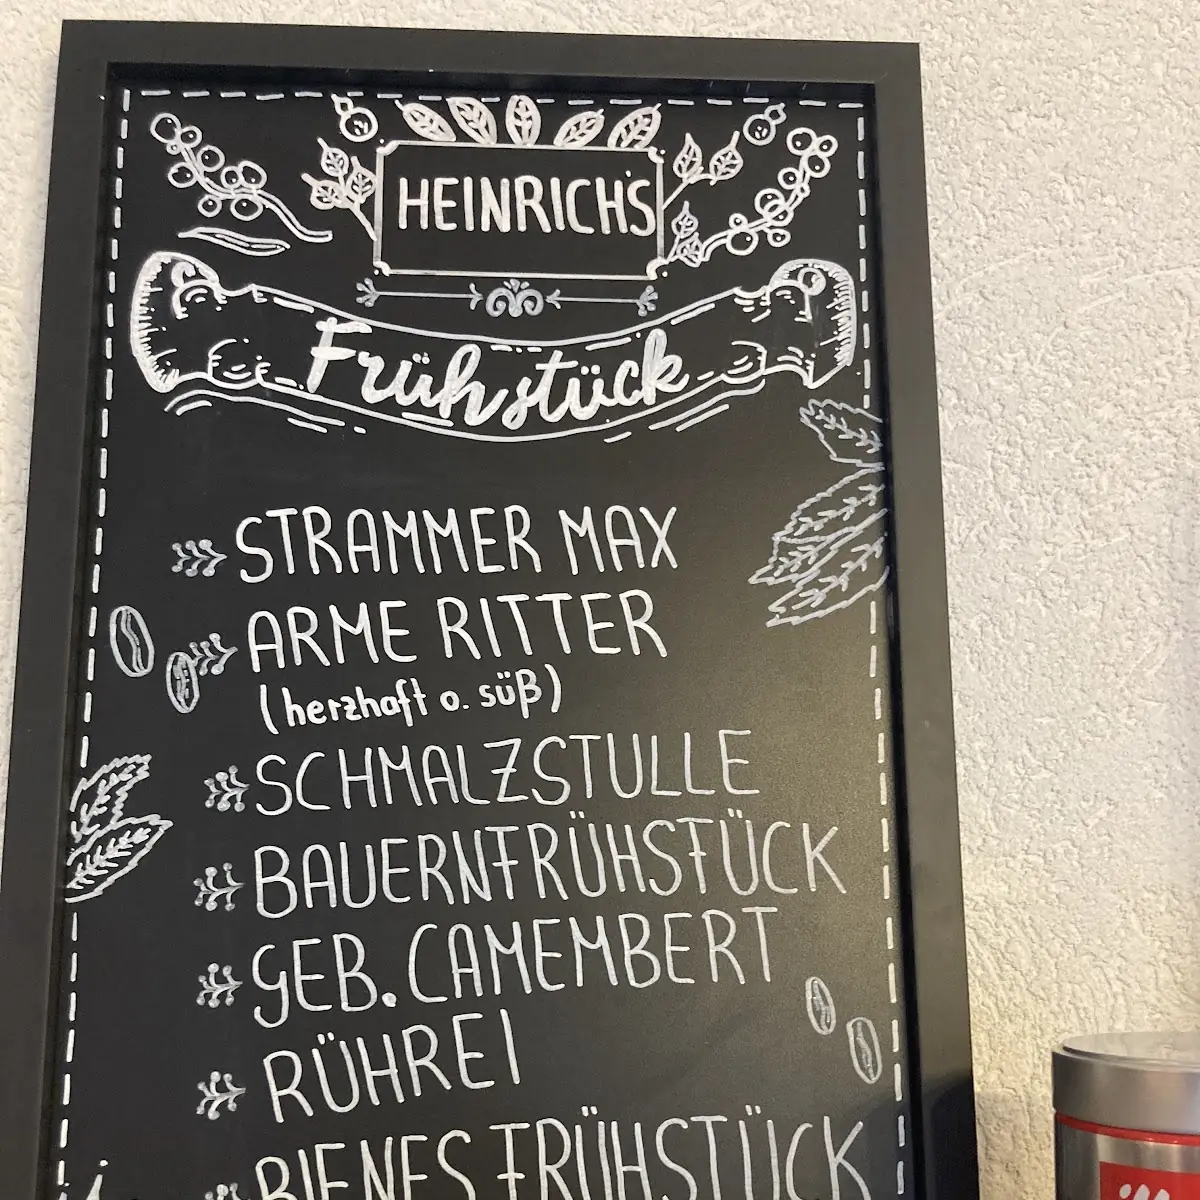 HEINRICH'S
Frühstück
STRAMMER MAX
ARME RITTER
(herzhaft o. süß)
SCHMALZSTULLE
BAUERNFRÜHSTÜCK
GEB. CAMEMBERT
RÜHREI
BIENES FRÜHSTÜCK